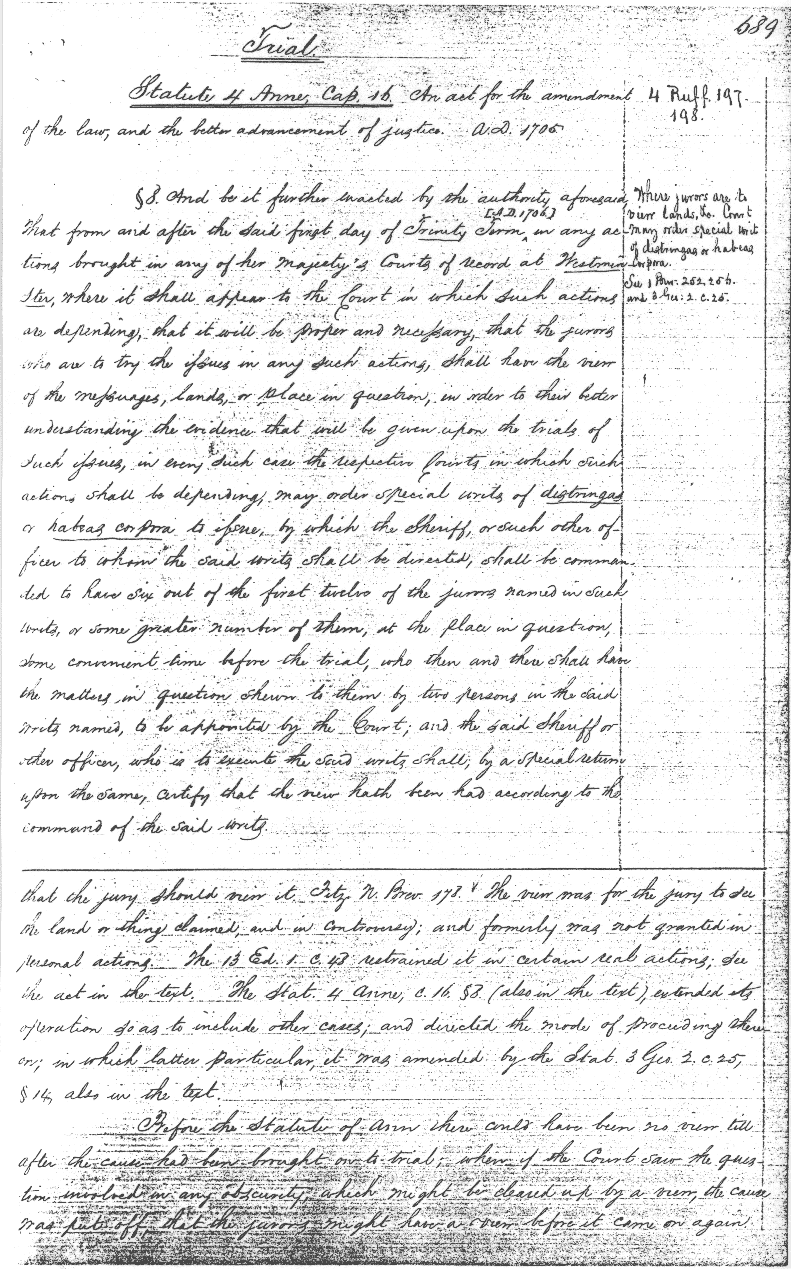 689
Trial.
Statute 4 Anne, Cap. 16. An act for the amendment
of the law, and the better advancement of justice. A.D. 1705
4 Ruff. 197.
198.
§8. And be it further enacted by the authority aforesaid,
[A.D. 1706]
That from and after the said first day of Trinity Term, in any ac-
tions brought in any of her majesty's Courts of record at Westmin
ster, where it shall appear to the Court in which such actions
are depending, that it will be proper and necessary, that the jurors
who are to try the issues in any such actions, shall have the view
of the messuages, lands, or place in question, in order to their better
understanding the evidence that will be given upon the trials of
such issues, in every such case the respective Courts in which such
actions shall be depending, may order special writs of distringas
or habeas corpora to issue, by which the Sheriff, or such other of-
ficer to whom the said writs shall be directed, shall be comman-
ded to have six out of the first twelve of the jurors named in such
writs, or some greater number of them, at the place in question,
some convenient time before the trial, who then and there shall have
the matters in question shewn to them by two persons in the said
writs named, to be appointed by the Court; and the said Sheriff or
other officer, who is to execute the said writs shall, by a special return
upon the same, certify that the view hath been had according to the
command of the said writs.
Where jurors are to
view lands, &c. Court
may order special writ
of distringas or habeas
corpora.
See 1 Burr. 252, 256.
and 3 Geo: 2. c. 25.
that the jury should view it. Fitz. N. Brev. 178. The view was for the jury to see
the land or thing claimed, and in controversy; and formerly was not granted in
personal actions. The 13 Ed. 1. c. 48 restrained it in certain real actions; see
the act in the text. The Stat. 4 Anne, c. 16. §8. (also in the text), extended its
operation so as to include other cases, and directed the mode of proceeding there-
on; in which latter particular, it was amended by the Stat. 3 Geo. 2. c. 25,
§ 14, also in the text.
Before the Statute of Ann there could have been no view till
after the cause had been brought on to trial; when if the Court saw the ques-
tion involved in any obscurity, which might be cleared up by a view, the cause
was put off, that the jurors might have a view before it came on again.